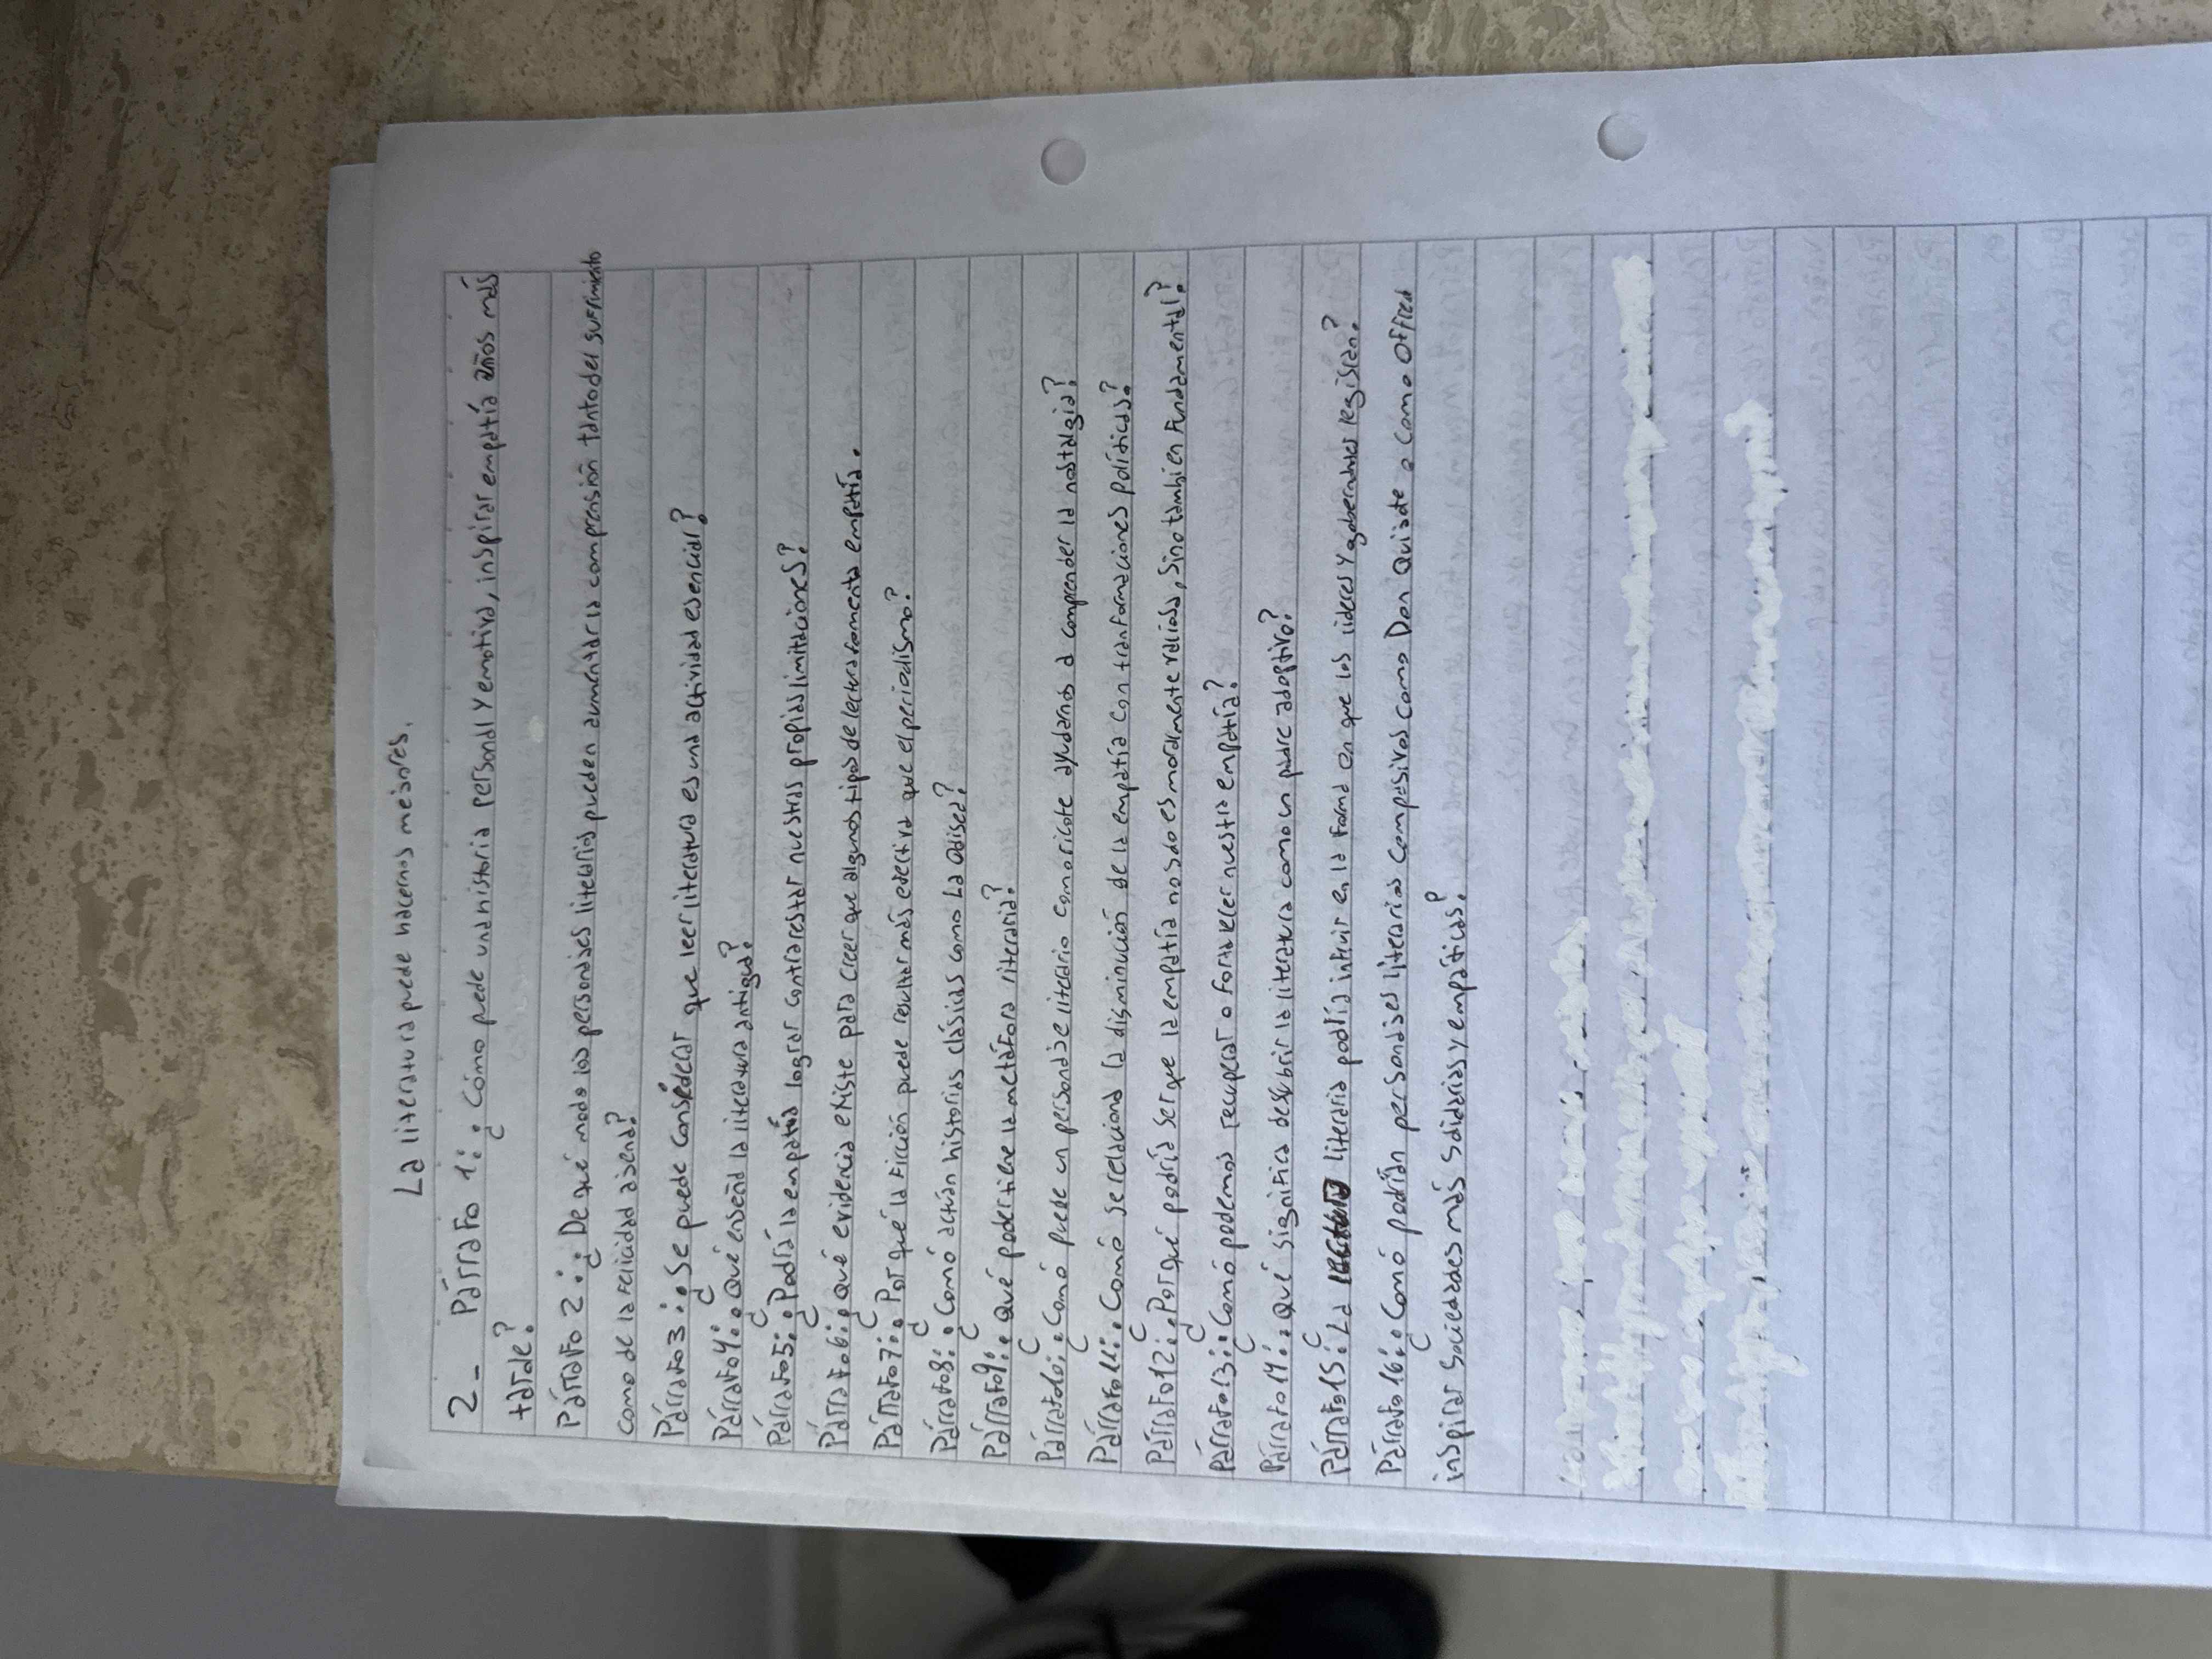 La literatura puede hacernos mejores.
2- Párrafo 1: ¿Cómo pede una historia personal y emotiva, inspirar empatía años más
tarde?
Párrafo 2: ¿De qué modo los personajes literarios pueden aumentar la comprensión tanto del sufrimiento
como de la felicidad ajena?
Párrafo 3: ¿Se puede considerar que leer literatura es una actividad esencial?
Párrafo 4: ¿Qué enseña la literatura antigua?
Párrafo 5: ¿Podría la empatía lograr contrarestar nuestras propias limitaciones?
Párrafo 6: ¿Qué evidencia existe para creer que algunos tipos de lectura fomenta empatía.
Párrafo 7: ¿Por qué la ficción puede resultar más efectiva que el periodismo?
Párrafo 8: ¿Comó actúan historias clásicas como La Odisea?
Párrafo 9: ¿Qué poder tiene la metáfora literaria?
Párrafo 10: ¿Comó puede un personaje literario como ricote ayudarnos a comprender la nostalgia?
Párrafo 11: ¿Comó se relaciona la disminución de la empatía con tranformaciones políticas?
Párrafo 12: ¿Por qué podría ser que la empatía no solo es moralmente valiosa, sino tambien fundamental?
Párrafo 13: ¿Comó podemos recuperar o fortalecer nuestra empatía?
Párrafo 14: ¿Qué significa describir la literatura como un padre adoptivo?
Párrafo 15: ¿La literaria podría influir en la forma en que los lideres y gobernantes legislan?
Párrafo 16: ¿Comó podrían personajes literarios compasivos como Don Quijote o como Offred
inspirar Sociedades más Solidarias y empáticas?